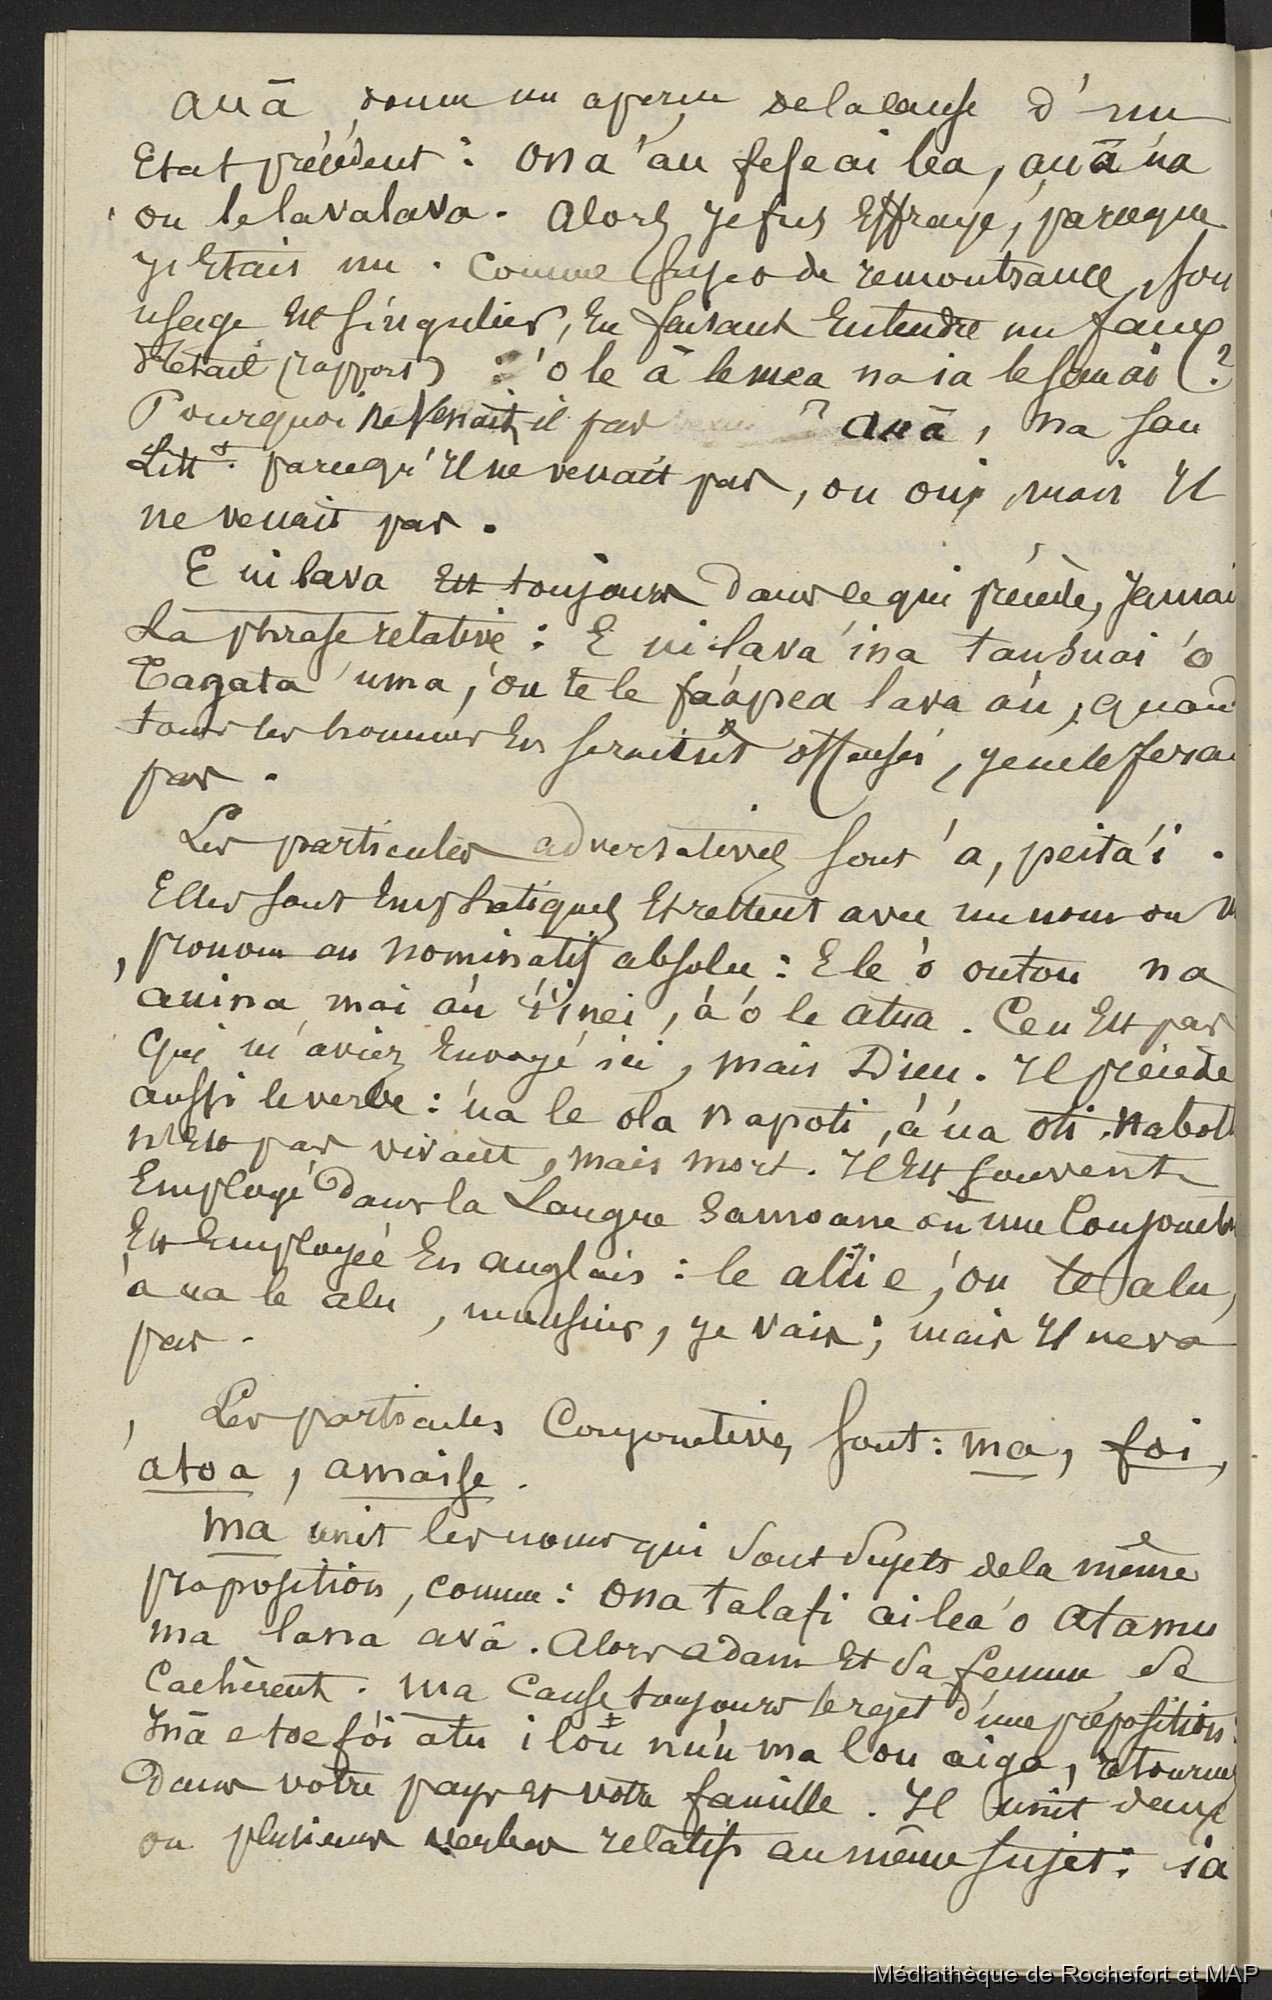 auā donne un aperçu de la cause d'un
Etat précédent : Ona 'au fefe ai lea, auā ua
ou le lavalava. Alors je fus Effrayé, parceque
j'étais nu. Comme sujet de remontrance, son
usage Est singulier, En faisant Entendre un faux
détail (rapport) : 'o le ā le mea na ia le sau ai (?
Pourquoi ne Venait il pas ? auā, na sau
Litt.t parcequ'Il ne venait pas, ou oui, mais Il
ne venait pas.
E ui lava Est toujours Dans ce qui précède, Jamai
La phrase relative : E ui lava ina tausuai 'o
Tagata 'uma, 'ou te le fa'apea lava a'u, quand
tous les hommes En seraient offensés, je ne le ferai
pas.
Les particules adversatives sont 'a, peita'i.
Elles sont Emphatiques Et restent avec un nom ou
pronom au nominatif absolu : E le 'o outou na
auina mai a'u i'inei, 'a 'o le Atua. Ce n'Est pas
Qui m'aviez Envoyé ici, mais Dieu. Il précède
aussi le verbe : 'ua le ola Napoti, 'a 'ua oti. Nabot
n'Est pas vivant, mais mort. Il Est souvent
Employé Dans la Langue Samoane où une Conjonct
Est Employée En anglais : le alii e, 'ou te alu,
'a ua le alu, monsieur, je vais ; mais Il ne va
pas.
Les particules Conjonctives sont : ma, foi,
atoa, amaise.
Ma unit les noms qui sont sujets de la même
proposition, comme : Ona talafi ai lea 'o Atamu
ma lana avā. Alors Adam Et sa femme se
Cachèrent. Ma Cause toujours le rejet d'une préposition :
Inā e toe fo'i atu i lou nu'u ma lou aiga, retournez
Dans votre pays et votre famille. Il unit deux
ou plusieurs verbes relatifs au même sujet : ia
Médiathèque de Rochefort et MAP